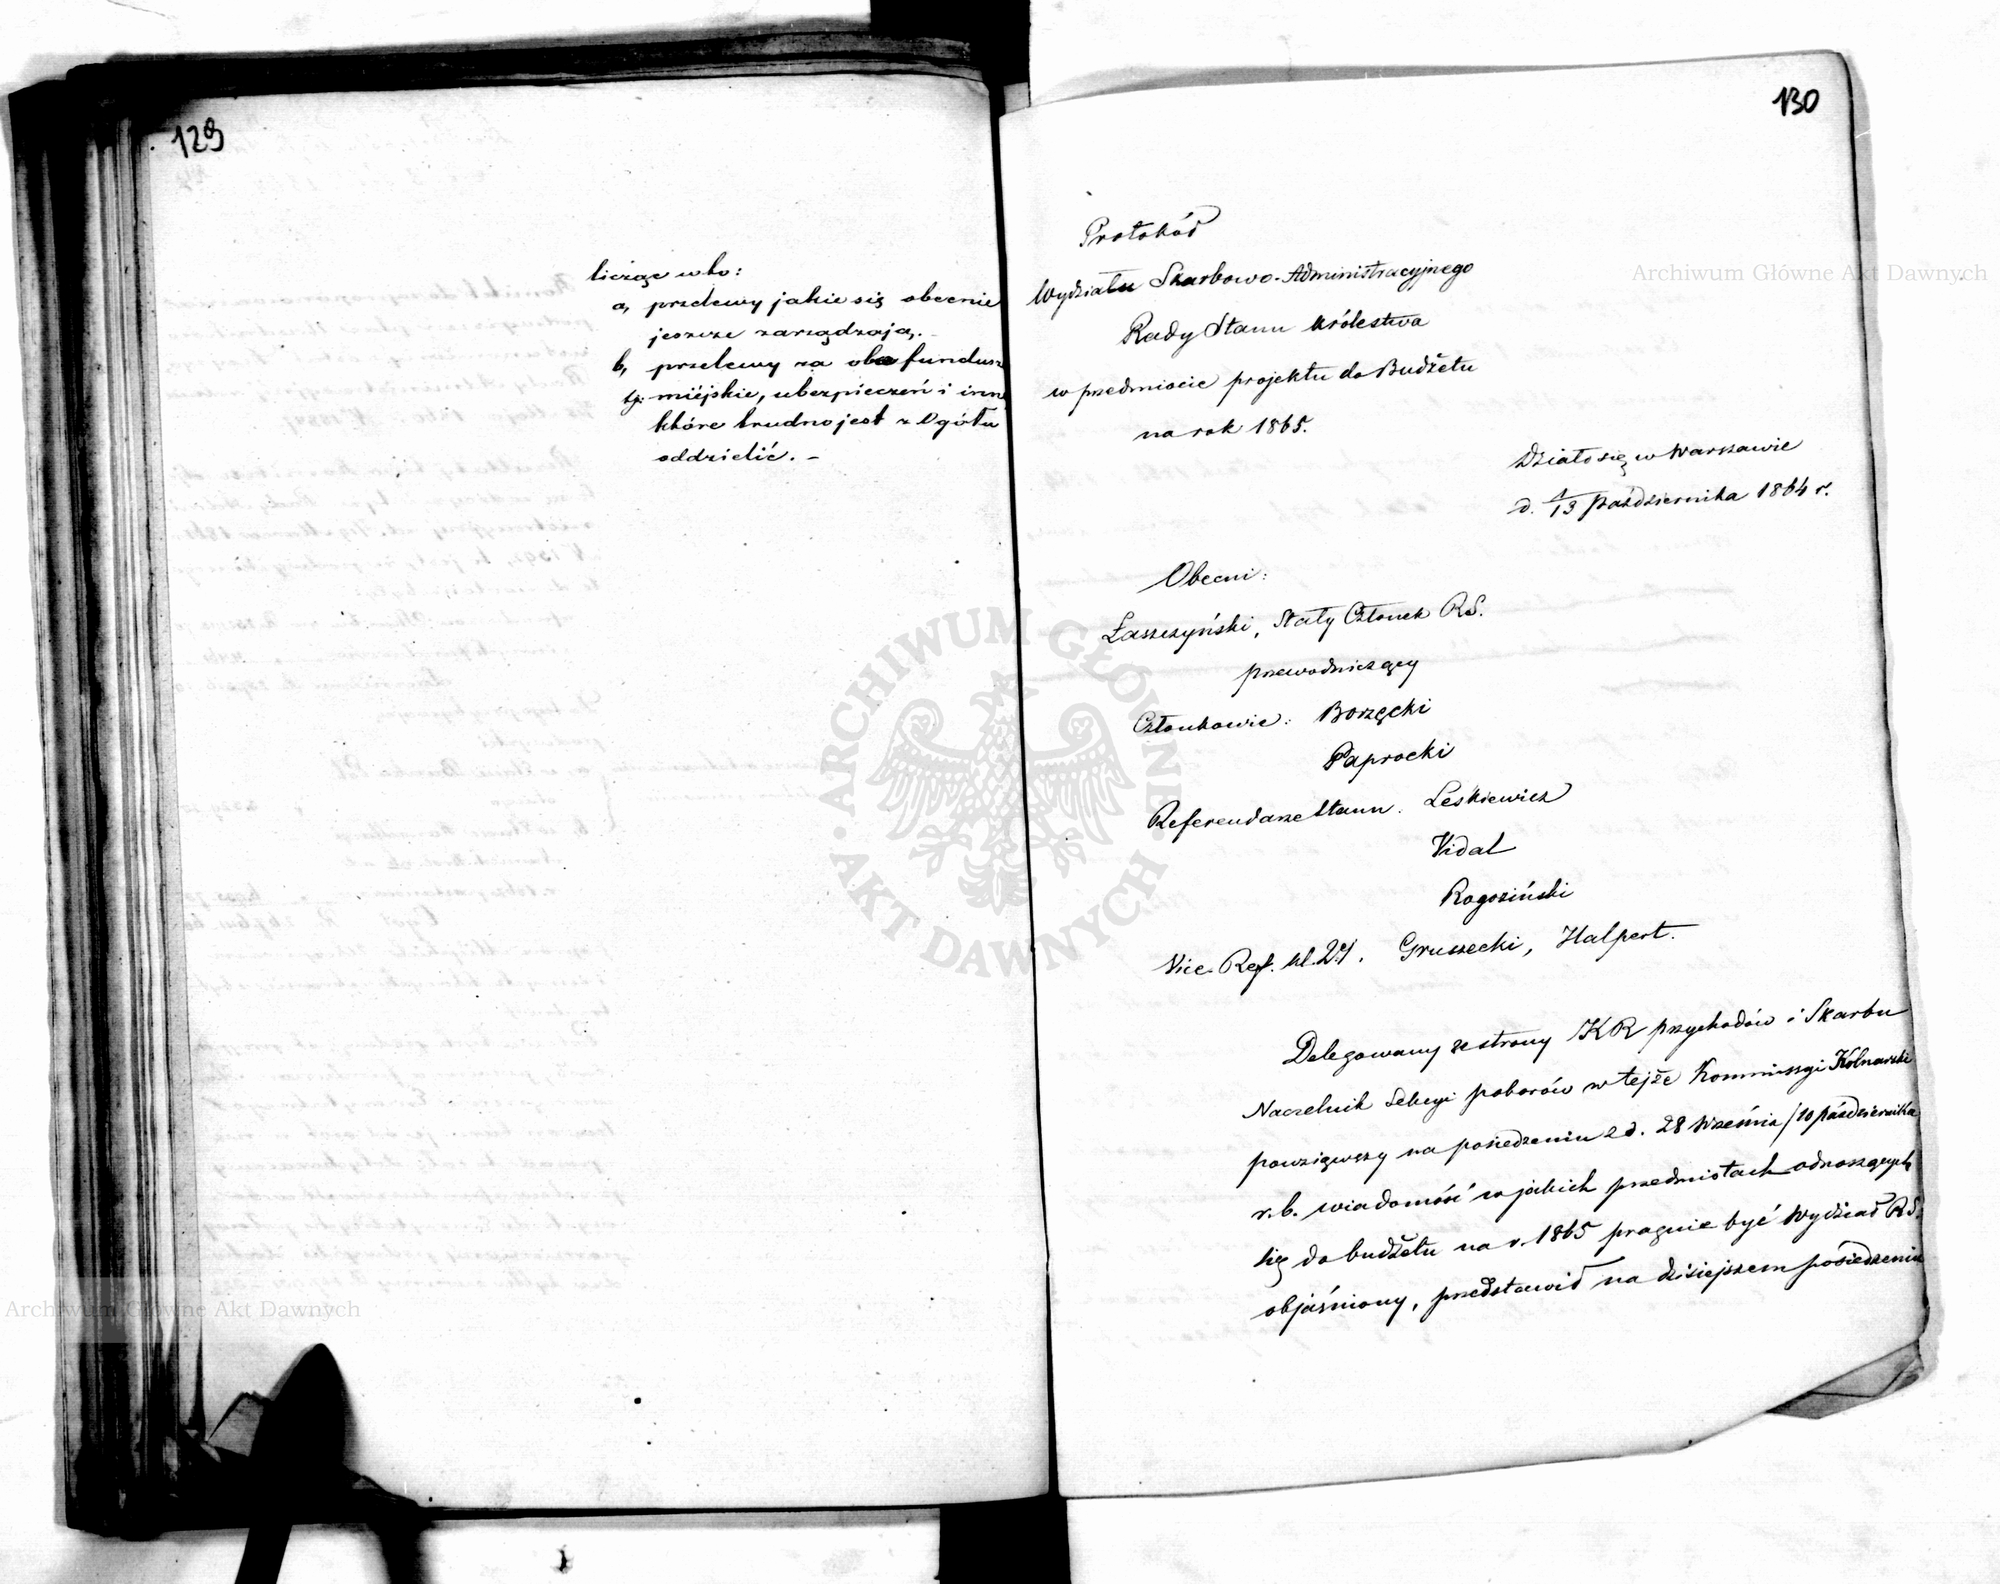 129
licząc w to:
a, przelewy jakie się obecnie
jeszcze zarządzają. -
b, przelewy za oba fundusz
tj: miejskie, ubezpieczeń i inn
które trudno jest z Ogółu
oddzielić. -
130
Protokół
Wydziału Skarbowo-Administracyjnego
Rady Stanu Królestwa
w przedmiocie projektu do Budżetu
na rok 1865.
Działo się w Warszawie
d. 1/13 Października 1864 r.
Obecni:
Łaszczyński, Stały Członek RS.
przewodniczący
Członkowie: Borzęcki
Paprocki
Referendarze Stanu. Leskiewicz
Vidal
Rogoziński
Vice-Ref. kl. 2éj. Gruszecki, Halpert.
Delegowany ze strony KR przychodów i Skarbu
Naczelnik Sekcyi poborów w tejże Kommissyi Kolnarski
powziąwszy na posiedzeniu z d. 28 Września/10 Października
r.b. wiadomość w jakich przedmiotach odnoszących
się do budżetu na r. 1865 pragnie być Wydział RS.
objaśniony, przedstawił na dzisiejszem posiedzeniu
Archiwum Główne Akt Dawnych
ARCHIWUM GŁÓWNE AKT DAWNYCH
Archiwum Główne Akt Dawnych